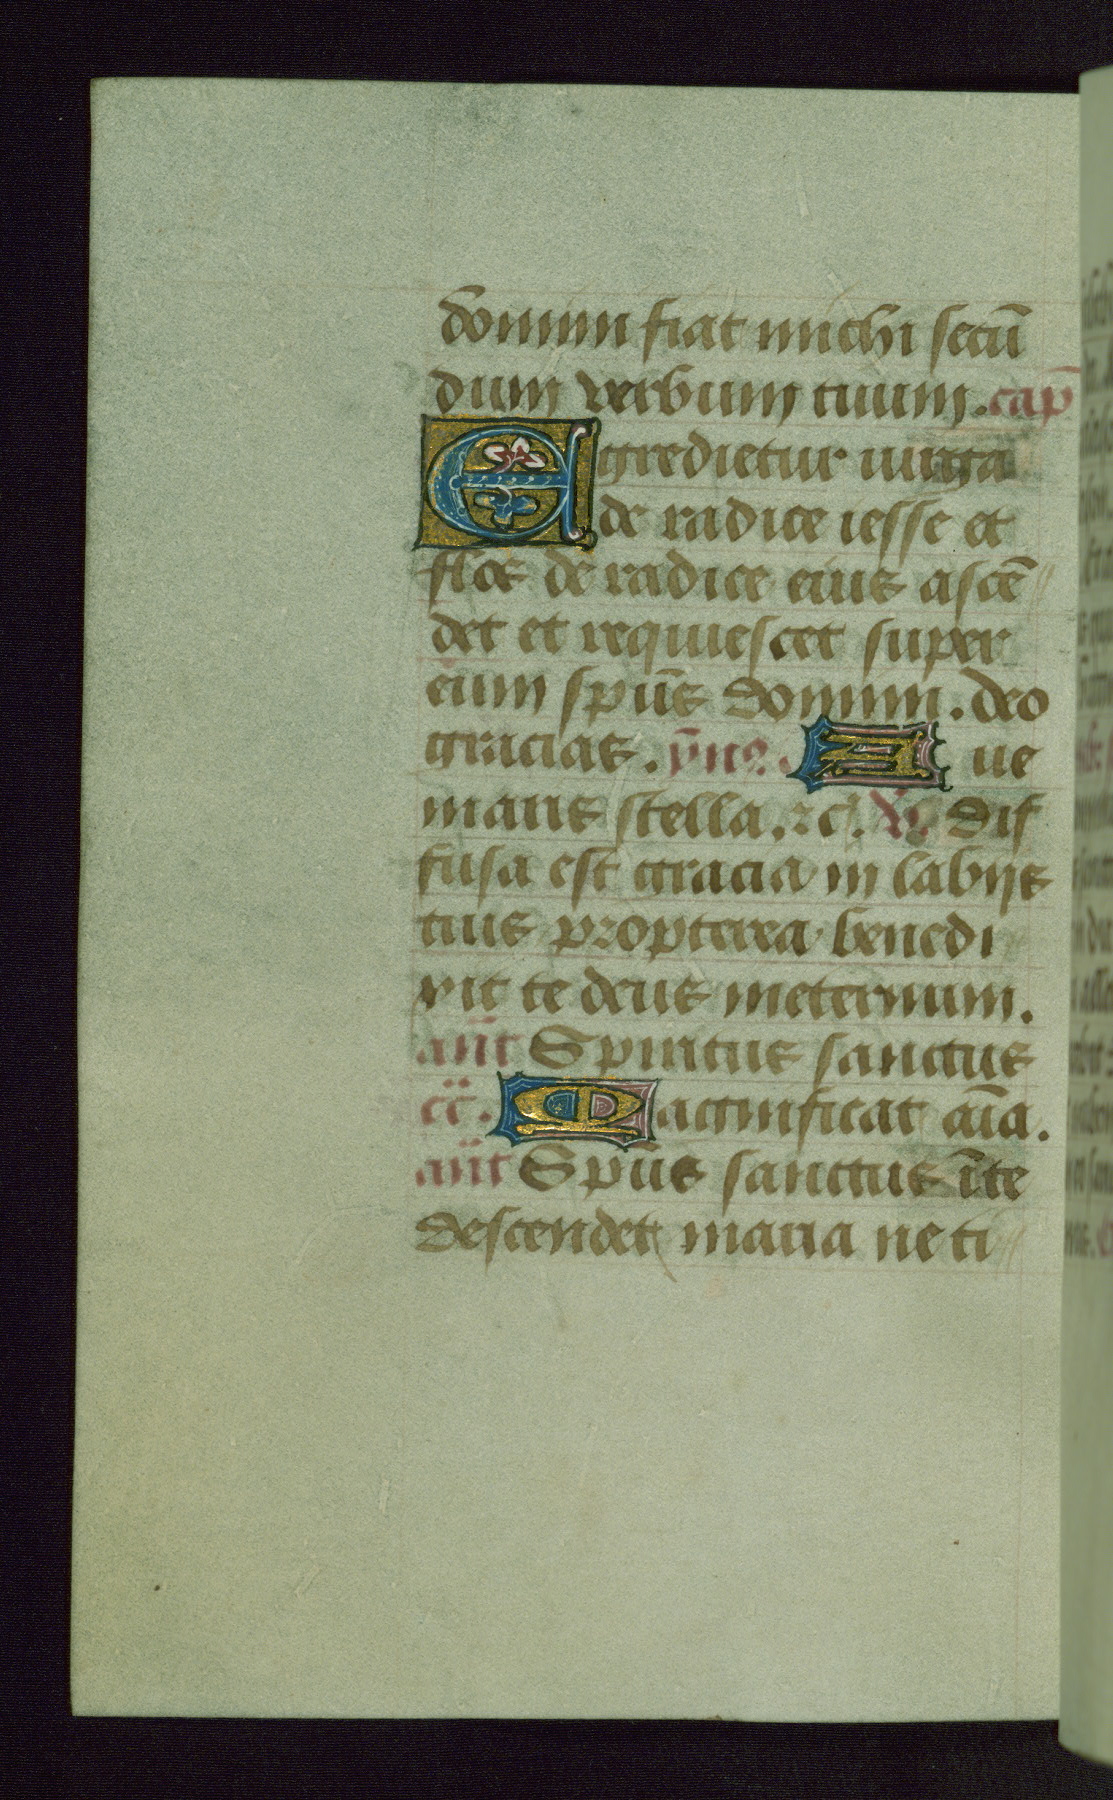 domini fiat michi secū
dum verbum tuum. cap̄
Egredietur uirga
de radice iesse et
flos de radice eius ascē
det et requiescet super
eum spūs domini. deo
gracias. ȳns. Aue
maris stella. ⁊c̃. v̾. Dif
fusa est gracia in labijs
tuis propterea benedi
xit te deus ineternum.
añt Spiritus sanctus
c̈c̈. Magnificat aīa.
añt Spūs sanctus īte
descendet maria ne ti